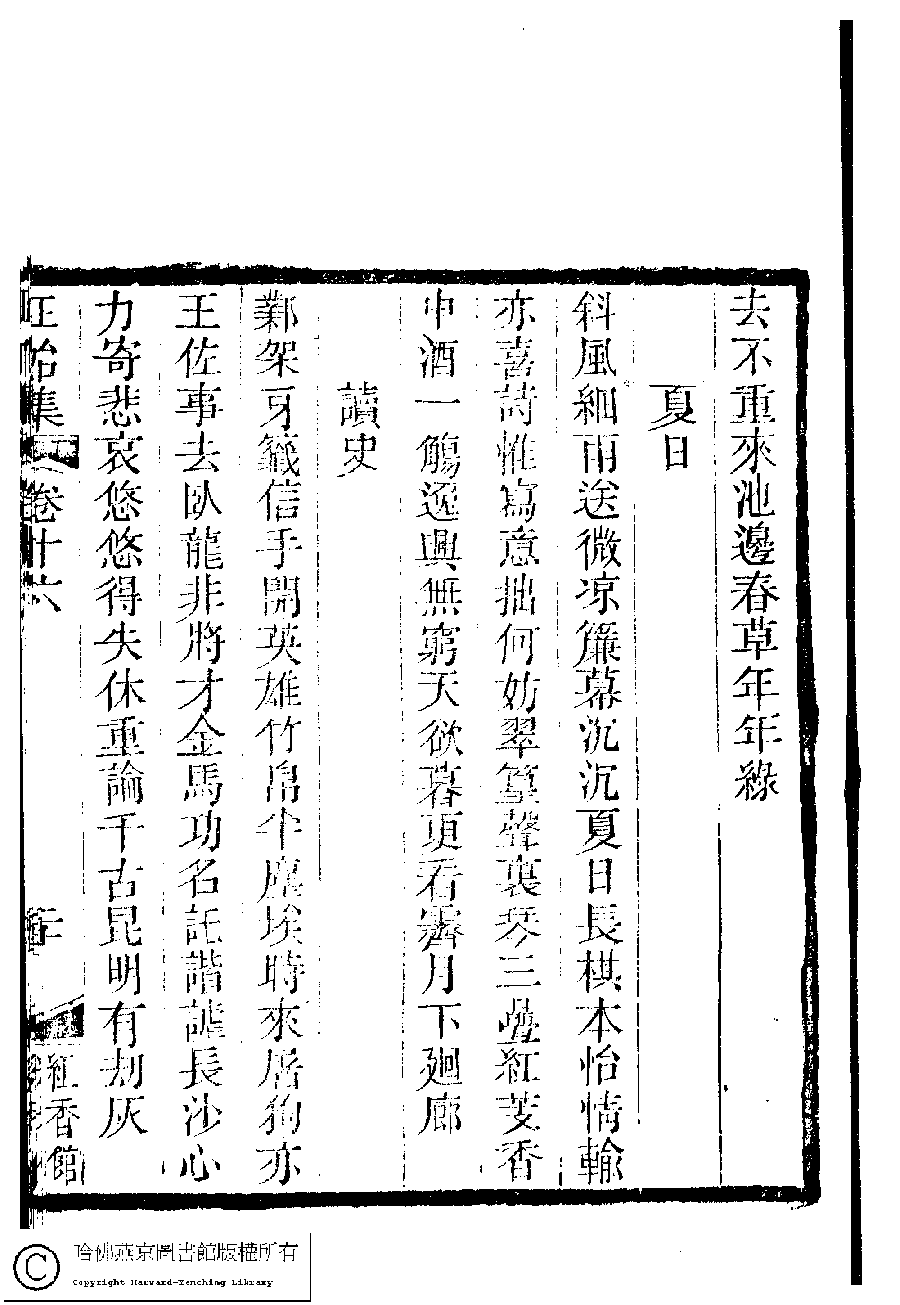 去不重來池邊春草年年綠
夏日
斜風細雨送微凉簾幕沉沉夏日長棋本怡情輸
亦喜詩惟寫意拙何妨翠篁聲裏琴三疊紅芰香
中酒一觴逸興無窮天欲暮更看霽月下廻廊
讀史
鄴架牙籤信手開英雄竹帛半塵埃時來屠狗亦
王佐事去臥龍非將才金馬功名託諧謔長沙心
力寄悲哀悠悠得失休重論千古昆明有刼灰
正始集 卷十六 二十 紅香館
哈佛燕京圖書館版權所有
Copyright Harvard-Yenching Library